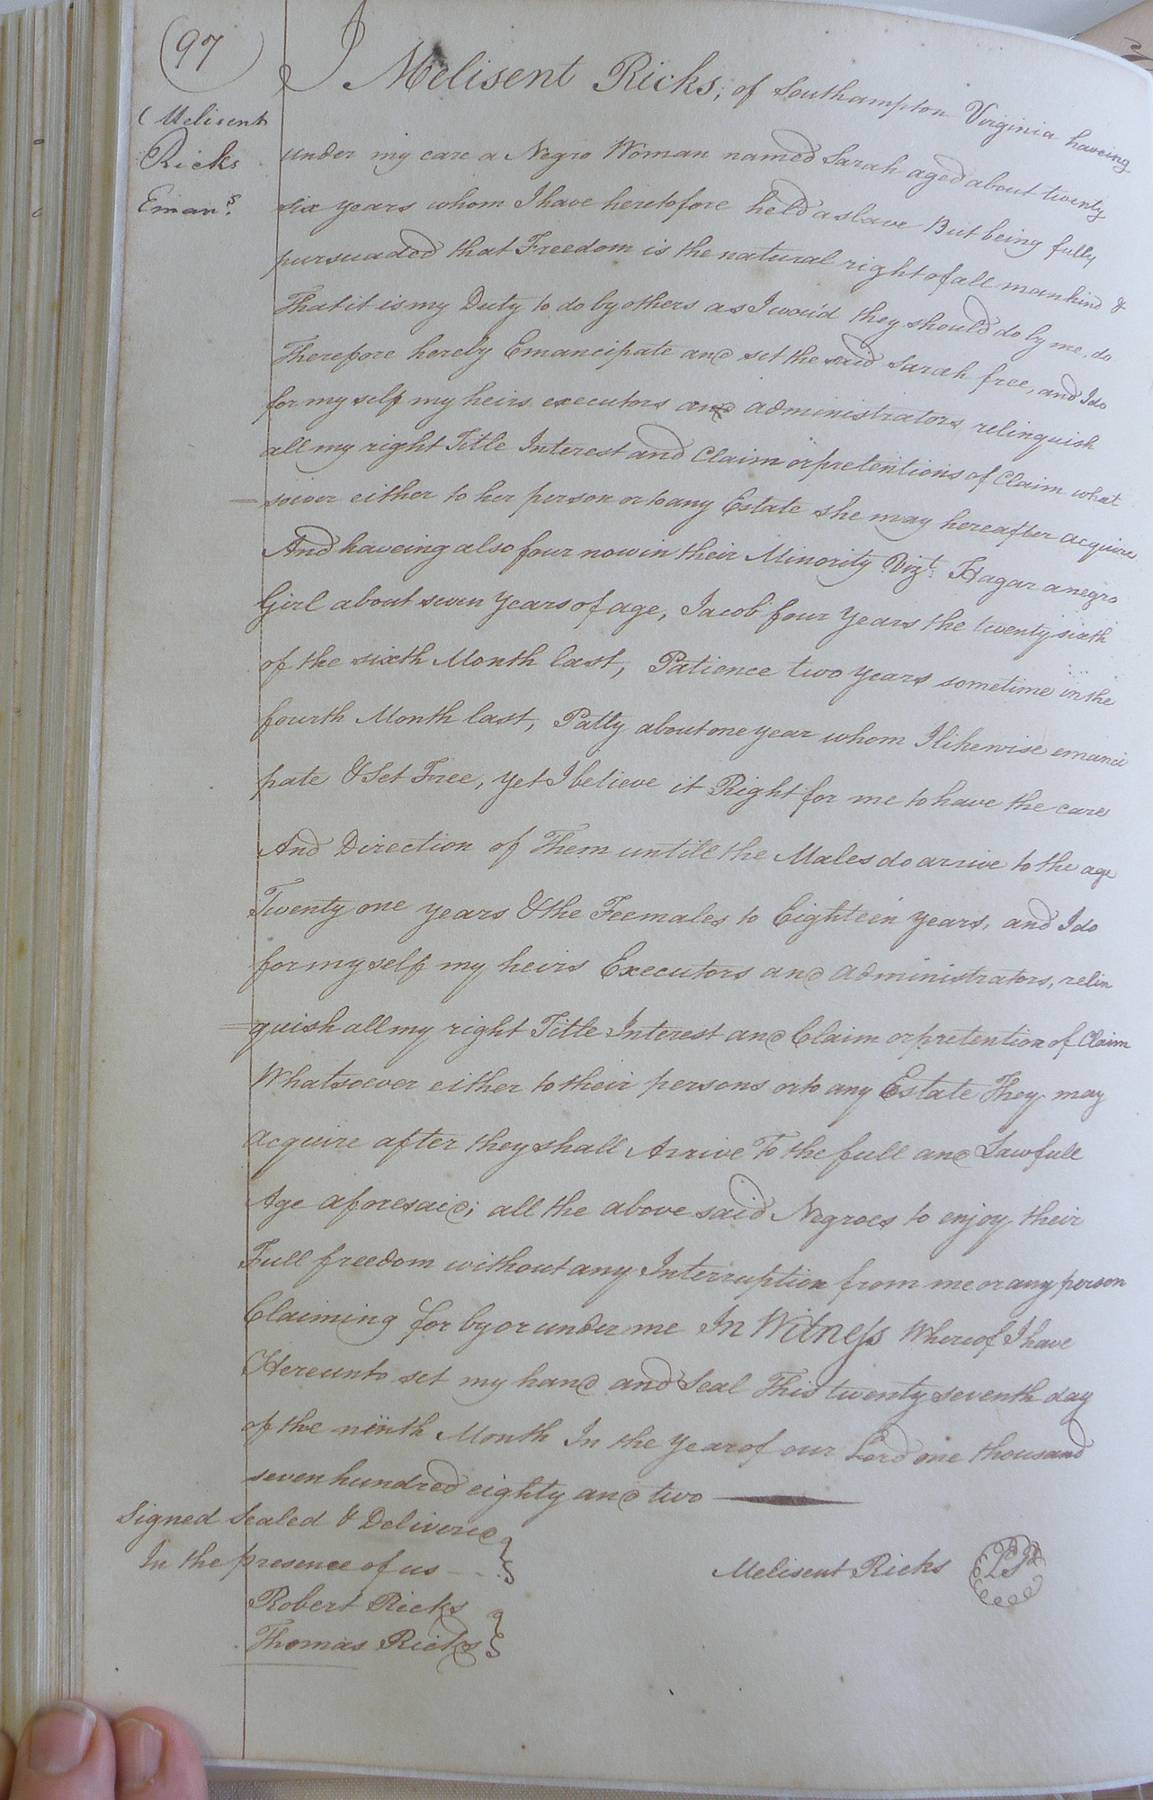 (97)
(Melisent
Ricks
Emans.
I Melisent Ricks, of Southampton Virginia haveing
under my care a Negro Woman named Sarah aged about twenty
six years whom I have heretofore held a slave But being fully
pursuaded that Freedom is the natural right of all mankind &
That it is my Duty to do by others as I wou'd they should do by me, do
Therefore hereby Emancipate and set the said Sarah free, and I do
for my self my heirs executors and administrators relinquish
all my right Title Interest and Claim or pretentions of Claim what
soiver either to her person or to any Estate she may hereafter acquire
And haveing also four now in their Minority Vizt. Hagar a negro
Girl about seven years of age, Jacob four years the twenty sixth
of the sixth Month last, Patience two years sometime in the
fourth Month last, Patty about one year whom I likewise emanci
pate & Set Free, yet I believe it Right for me to have the care
And Direction of Them untill the Males do arrive to the age
Twenty one years & the Feemales to Eighteen years, and I do
for my self my heirs Executors and administrators, relin
=quish all my right Title Interest and Claim or pretention of Claim
Whatsoever either to their persons or to any Estate They may
acquire after they shall Arrive To the full and Lawfull
Age aforesaid; all the above said Negroes to enjoy their
Full freedom without any Interruption from me or any person
Claiming for by or under me In Witness Whereof I have
Hereunto set my hand and Seal This twenty seventh day
of the ninth Month In the year of our Lord one thousand
seven hundred eighty and two
Signed Sealed & Delivered
In the presence of us
Melisent Ricks LS
Robert Ricks
Thomas Ricks